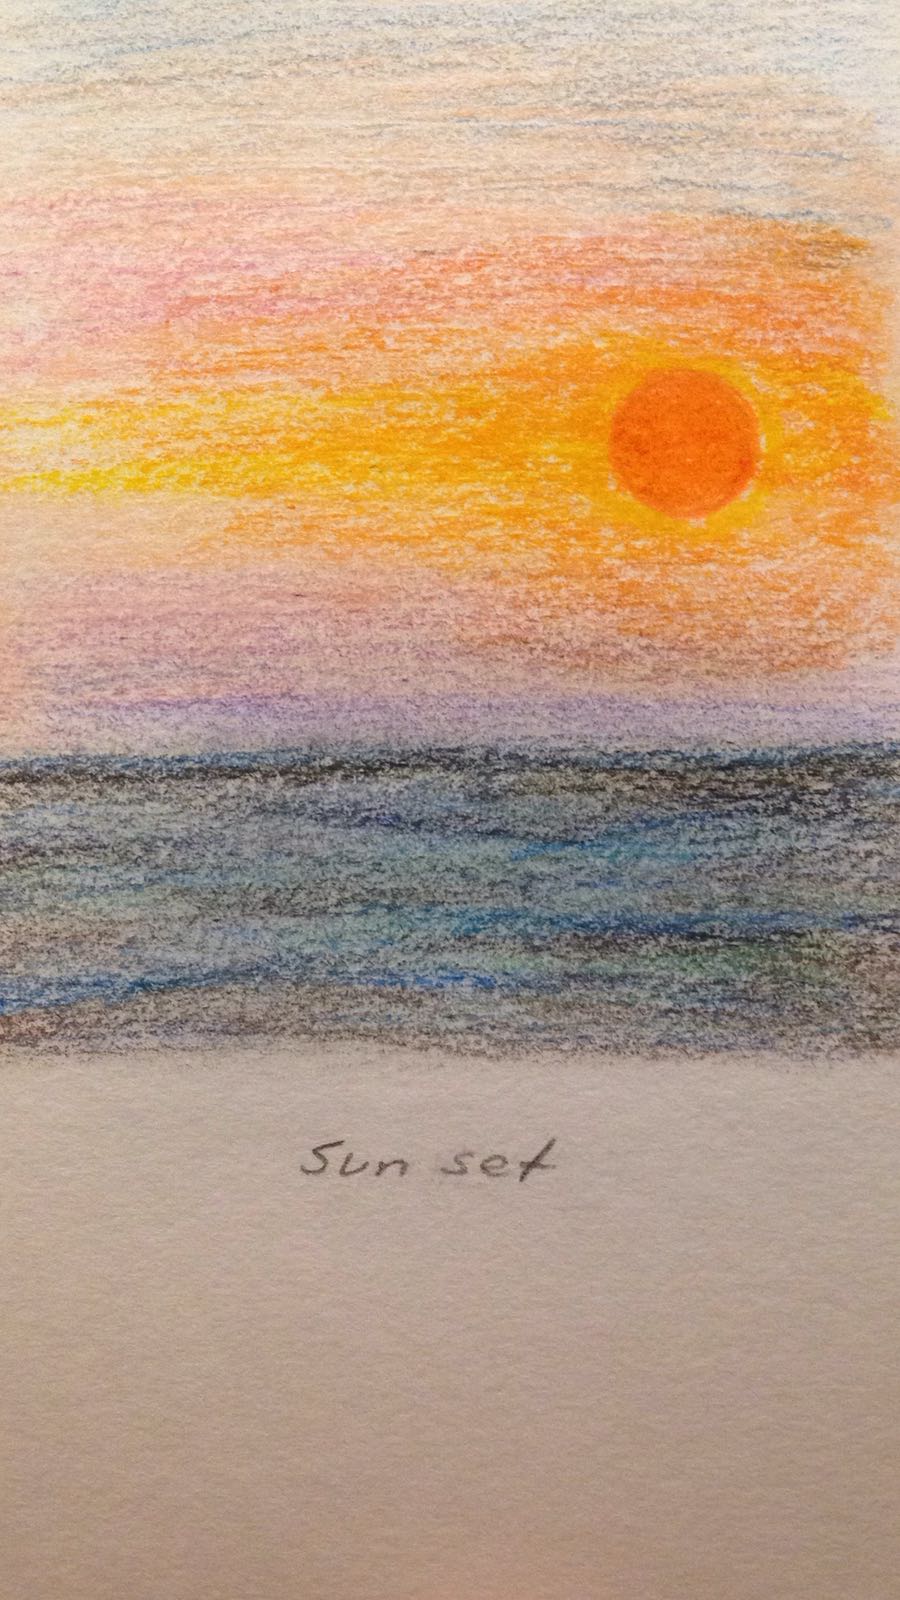 Sun set